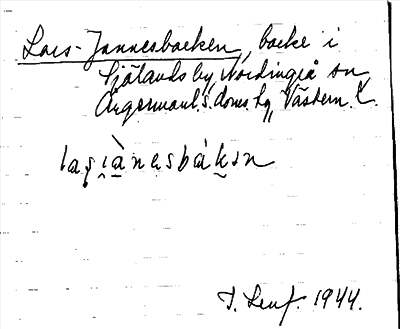 Lars-Jannesbacken, backe i
Själands by, Nordingrå sn
Ångermanl. s. doms. hg, Västern. l.
laṣi̯ànesbàkən
1944.